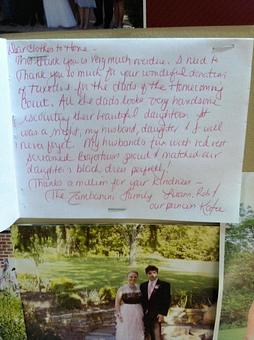 Dear Clothes to Home -
This thank you is very much overdue. I need to
Thank you so much for your wonderful donation
of tuxedos for the dads of the Homecoming
Court. All the dads looks very handsome
escorting their beautiful daughters. It
was a night, my husband, daughter & I will
never forget. My husbands tux with red vest
screamed proud & matched our
daughter's black dress perfectly!
Thanks a million for your kindness -
The Family
our princess